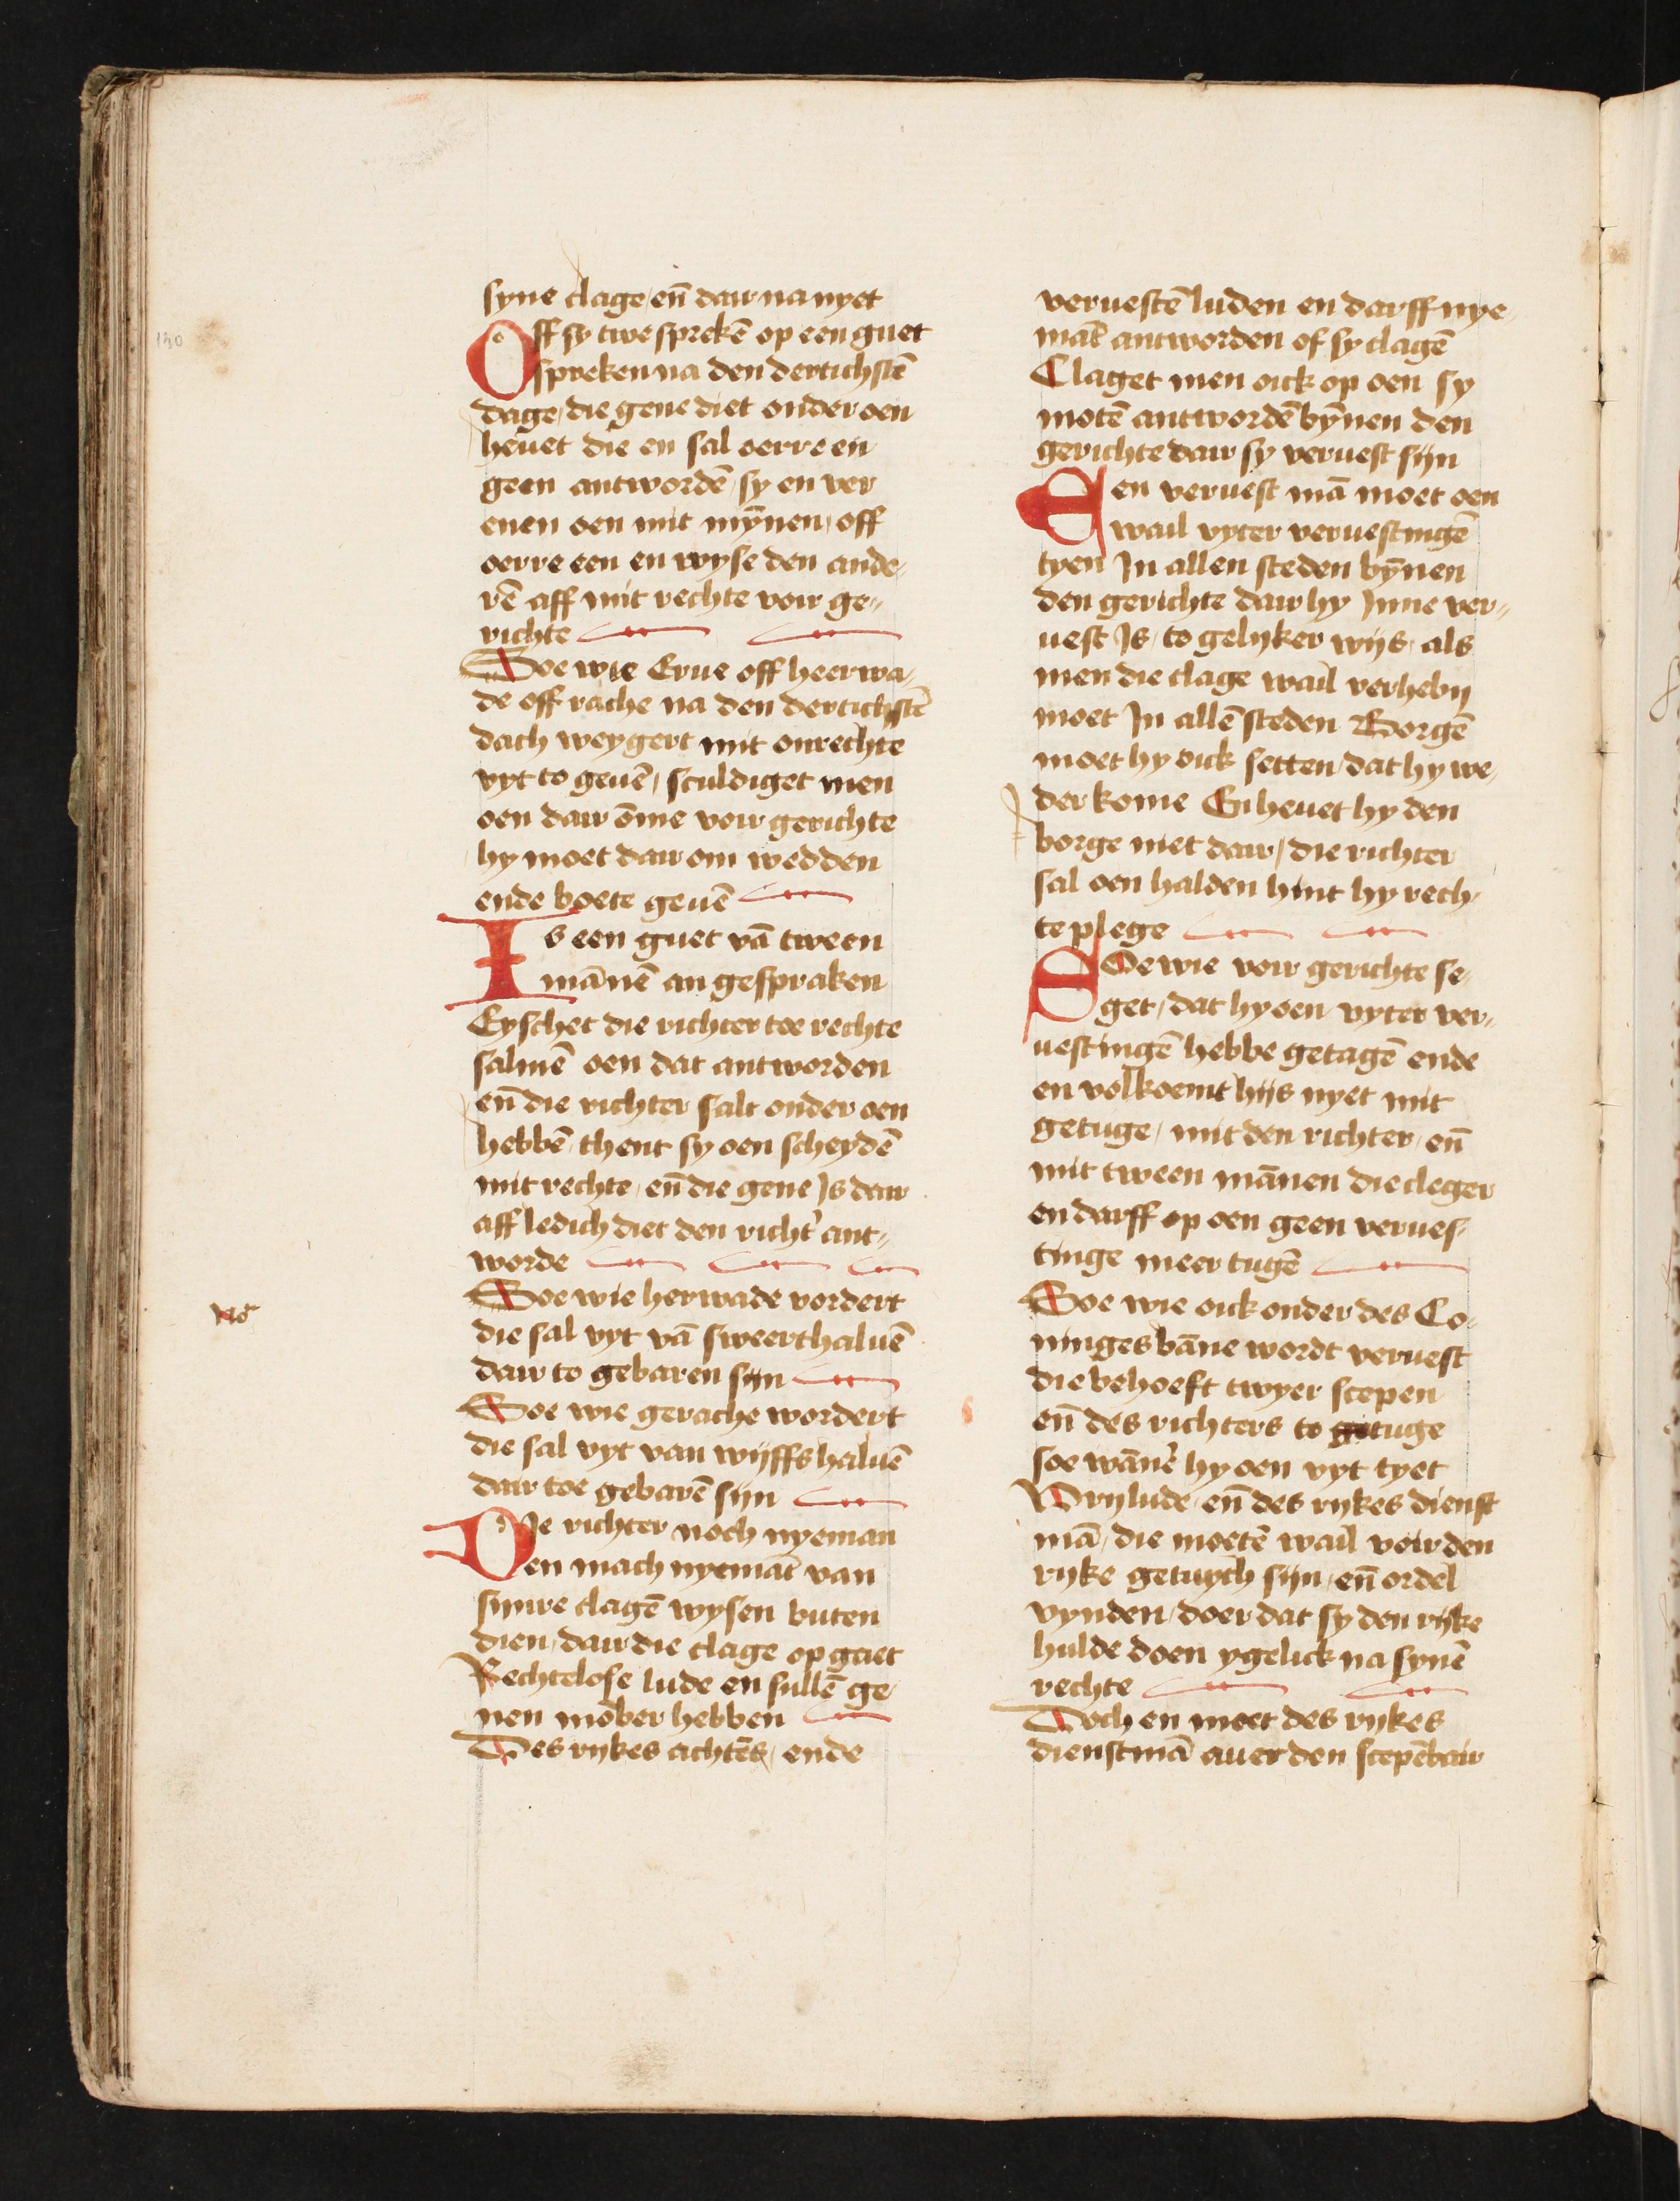 syne clage / en̄ dair na nyet
Off sy twe sprekē op een guet
spreken na den dertichstē
dage / die gene diet onder oen
heuet die en sal oerre en
geen antwordē / sy en ver
enen oen mit mȳnen / off
oerre een en wyse den ande-
rē aff mit rechte voir ge-
richte
Soe wie Erue off heerwa-
de off rache na den dertichstē
dach weygert mit onrechte
vyt to geuē / sculdiget men
oen dair ōme voir gerichte
hy moet dair om wedden
ende boete geuē
Is een guet vā tween
mānē an gespraken
Eyschet die richter toe rechte
salmē oen dat antworden
en̄ die richter salt onder oen
hebbē / thent sy oen scheydē
mit rechte / en̄ die gene Is dair
aff ledich diet den richt' ant-
worde
Soe wie herwade vordert
die sal vyt vā sweerthaluē
dair to gebaren sijn
Soe wie gerache wordert
die sal vyt van wijffs haluē
dair toe gebarē sijn
Die richter noch nyeman
en mach nyemāt van
sijnre clagē wysen buten
dien / dair die clage op gaet
Rechtelose lude en sullē ge
nen mōber hebben
Des rykes achters / ende
veruestē luden en darff nye
māt antworden of sy clagē
Claget men oick op oen sy
motē antwordē bȳnen den
gerichte dair sy veruest sijn
Een veruest mā moet oen
wail vyter veruestingē
tyen In allen steden bȳnen
den gerichte dair hy Inne ver-
uest Is / to gelyker wijs als
men die clage wail verhebn
moet In allē steden Borgē
moet hy oick setten / dat hy we-
der kome En heuet hy den
borge niet dair / die richter
sal oen halden hint hy rech-
te plege
Soe wie voir gerichte se-
get / dat hy oen vyter ver-
uestingē hebbe getagē ende
en volkoemt hijs nyet mit
getuge / mit den richter / en̄
mit tween mānen die cleger
en darff op oen geen verues-
tinge meer tugē
Soe wie oick onder des Co-
ninges bāne wordt veruest
die behoeft twyer scepen
en̄ des richters to getuge
soe wānē' hy oen vyt tyet
Vrylude / en̄ des rykes dienst
mā / die moetē wail voir den
ryke getuych sijn / en̄ ordel
vynden / doer dat sy den rijke
hulde doen ygelick na synē
rechte
Doch en moet des rykes
dienstmā auer den scepēbair
130